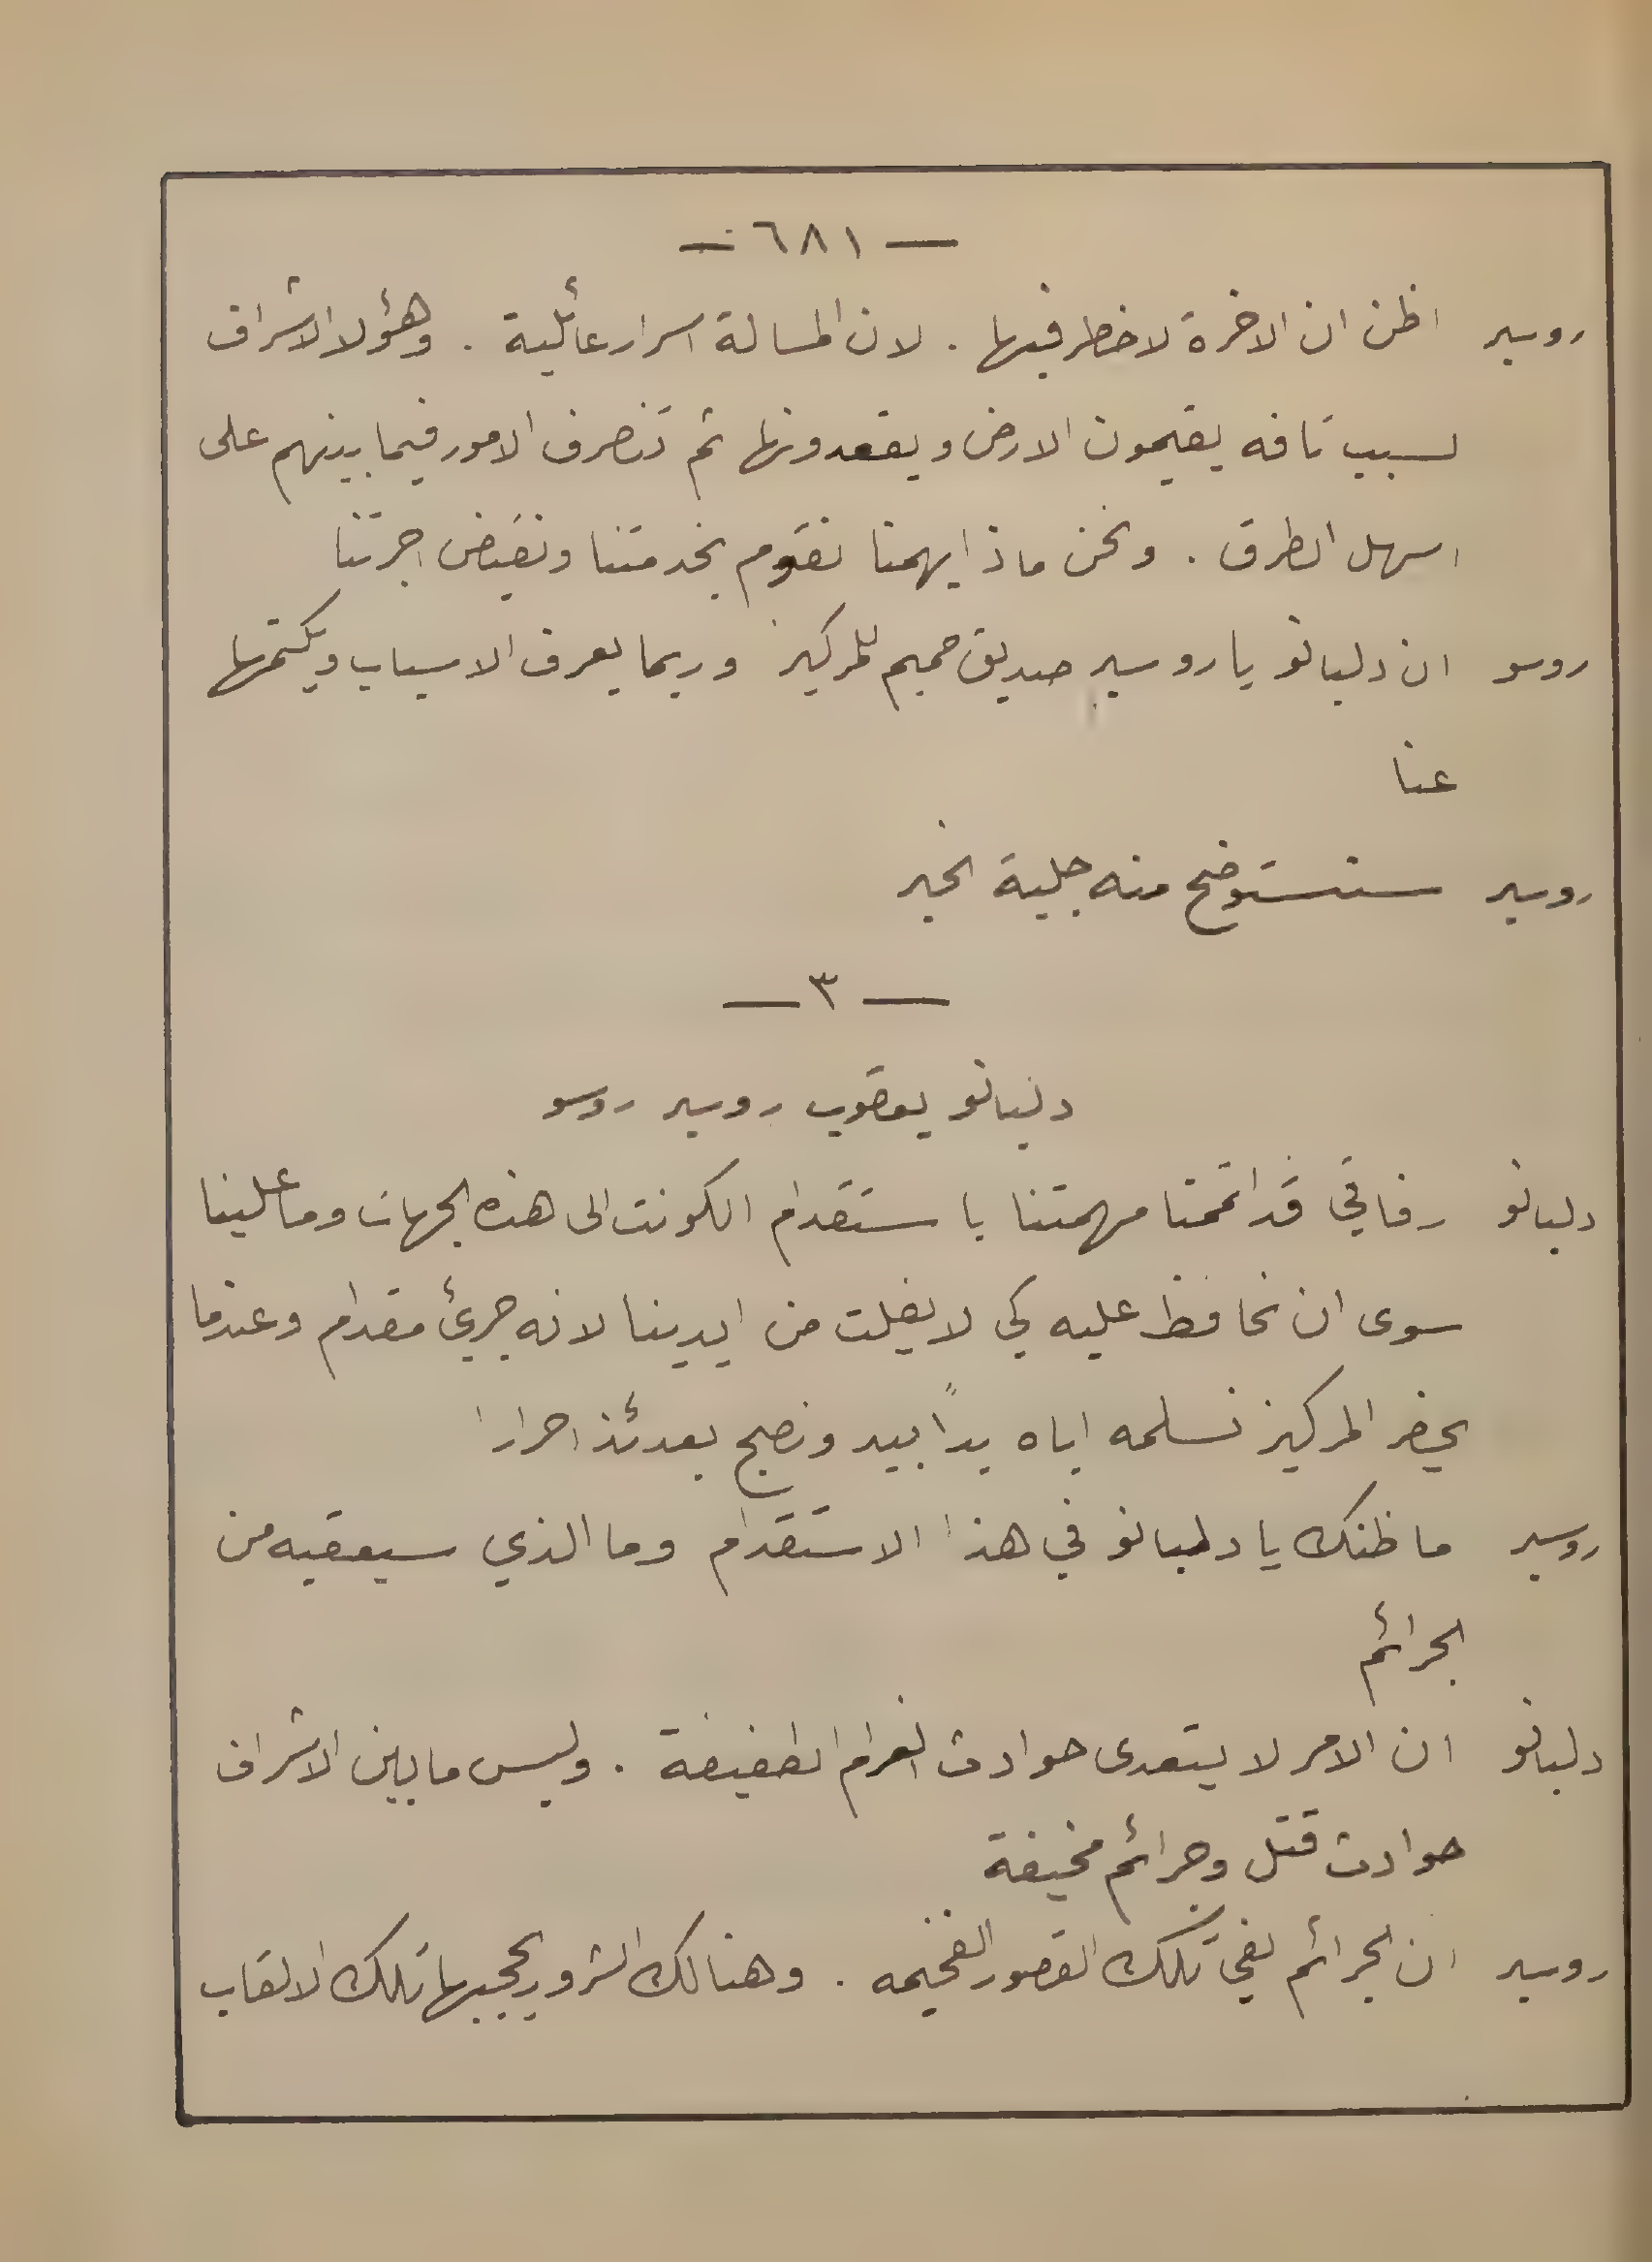 — ٦٨١ —
روبير اظن ان الاخرة لا خطر فيها . لان المسالة اسرار عائلية . وهؤلا الاشراف
لسبب تافه يقيمون الارض ويقعدونها ثم تنصرف الامور فيما بينهم على
اسهل الطرق . ونحن ماذا يهمنا نقوم بخدمتنا ونقبض اجرتنا
روسو ان دلبانو يا روبير صديق حميم للمركيز وربما يعرف الاسباب ويكتمها
عنا
روبير سنستوضح منه جلية الخبر
— ٣ —
دلبانو يعقوب روبير روسو
دلبانو رفاقي قد اتممنا مهمتنا باستقدام الكونت الى هذه الجهات وما علينا
سوى ان نحافظ عليه كي لا يفلت من ايدينا لانه جريئ مقدام وعندما
يحضر المركيز نسلمه اياه يداً بيد ونصبح بعدئذ احرارا
روبير ما ظنك يا دلبانو في هذا الاستقدام وما الذي سيعقبه من
الجرائم
دلبانو ان الامر لا يتعدى حوادث الغرام الطفيفة . وليس ما بين الاشراف
حوادث قتل وجرائم مخيفة
روبير ان الجرائم لفي تلك القصور الفخيمه . وهنالك الشرور يحجبها تلك الالقاب